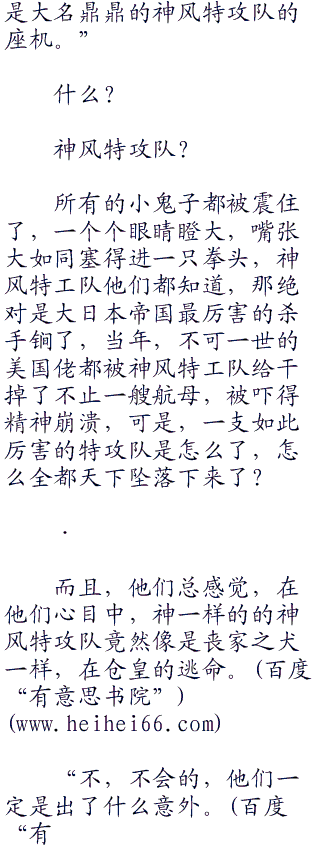 是大名鼎鼎的神风特攻队的
座机。”
什么?
神风特攻队?
所有的小鬼子都被震住
了，一个个眼睛瞪大，嘴张
大如同塞得进一只拳头，神
风特工队他们都知道，那绝
对是大日本帝国最厉害的杀
手锏了，当年，不可一世的
美国佬都被神风特工队给干
掉了不止一艘航母，被吓得
精神崩溃，可是，一支如此
厉害的特攻队是怎么了，怎
么全都天下坠落下来了?
.
而且，他们总感觉，在
他们心目中，神一样的的神
风特攻队竟然像是丧家之犬
一样，在仓皇的逃命。(百度
“有意思书院”)
(www.heihei66.com)
“不，不会的，他们一
定是出了什么意外。(百度
“有